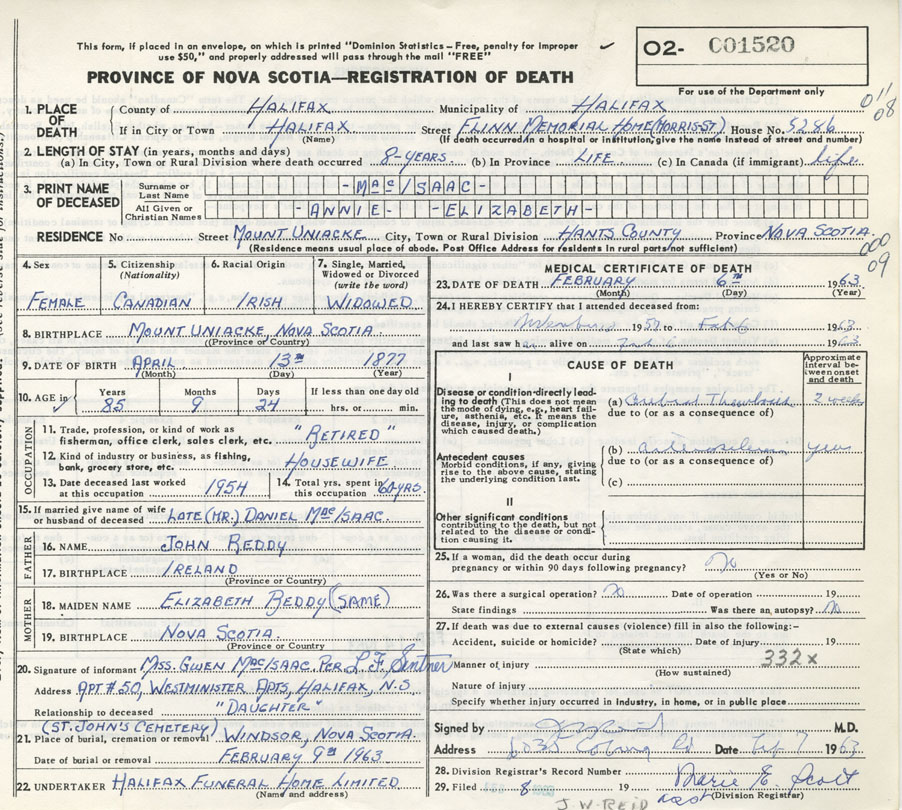 This form, if placed in an envelope, on which is printed "Dominion Statistics—Free, penalty for improper
use $50," and properly addressed will pass through the mail "FREE"
PROVINCE OF NOVA SCOTIA—REGISTRATION OF DEATH
O2- C01520
For use of the Department only
011
08
1. PLACE OF DEATH
County of HALIFAX Municipality of HALIFAX
If in City or Town HALIFAX (Name) Street FLINN MEMORIAL HOME (MORRIS ST) House No. 5286
(If death occurred in a hospital or institution, give the name instead of street and number)
2. LENGTH OF STAY (in years, months and days)
(a) In City, Town or Rural Division where death occurred 8-YEARS (b) In Province LIFE (c) In Canada (if immigrant) life
3. PRINT NAME OF DECEASED
Surname or Last Name -MacISAAC-
All Given or Christian Names -ANNIE- -ELIZABETH-
RESIDENCE No Street MOUNT UNIACKE City, Town or Rural Division HANTS COUNTY Province NOVA SCOTIA.
(Residence means usual place of abode. Post Office Address for residents in rural parts not sufficient)
000
09
4. Sex FEMALE
5. Citizenship (Nationality) CANADIAN
6. Racial Origin IRISH
7. Single, Married, Widowed or Divorced (write the word) WIDOWED
8. BIRTHPLACE MOUNT UNIACKE, NOVA SCOTIA
(Province or Country)
9. DATE OF BIRTH APRIL 13TH 1877
(Month) (Day) (Year)
10. AGE in Years 85 Months 9 Days 24 If less than one day old hrs. or min.
OCCUPATION
11. Trade, profession or kind of work as fisherman, office clerk, sales clerk, etc. "RETIRED"
12. Kind of industry or business, as fishing, bank, grocery store, etc. HOUSEWIFE
13. Date deceased last worked at this occupation 1954
14. Total yrs. spent in this occupation 60-YRS.
15. If married give name of wife or husband of deceased LATE (MR.) DANIEL MacISAAC.
FATHER
16. NAME JOHN REDDY
17. BIRTHPLACE IRELAND
(Province or Country)
MOTHER
18. MAIDEN NAME ELIZABETH REDDY (SAME)
19. BIRTHPLACE NOVA SCOTIA.
(Province or Country)
20. Signature of informant MSS. GWEN MacISAAC PER L F Sentner
Address APT #50, WESTMINISTER APTS, HALIFAX, N.S
Relationship to deceased "DAUGHTER"
(ST. JOHN'S CEMETERY)
21. Place of burial, cremation or removal WINDSOR, NOVA SCOTIA.
Date of burial or removal FEBRUARY 9TH 1963
22. UNDERTAKER HALIFAX FUNERAL HOME LIMITED
(Name and address)
MEDICAL CERTIFICATE OF DEATH
23. DATE OF DEATH FEBRUARY 6TH 1963
(Month) (Day) (Year)
24. I HEREBY CERTIFY that I attended deceased from:
1957 to Feb 6 1963
and last saw her alive on Feb 6 1963
CAUSE OF DEATH
Approximate interval between onset and death
I
Disease or condition directly leading to death (This does not mean the mode of dying, e.g., heart failure, asthenia, etc. It means the disease, injury, or complication which caused death.)
(a) Cerebral Thrombosis 2 weeks
due to (or as a consequence of)
Antecedent causes
Morbid conditions, if any, giving rise to the above cause, stating the underlying condition last.
(b) years
due to (or as a consequence of)
(c)
II
Other significant conditions
contributing to the death, but not related to the disease or condition causing it.
25. If a woman, did the death occur during pregnancy or within 90 days following pregnancy? No
(Yes or No)
26. Was there a surgical operation? No Date of operation 19
State findings Was there an autopsy? No
27. If death was due to external causes (violence) fill in also the following:—
Accident, suicide or homicide? Date of injury 19
(State which)
Manner of injury 332x
(How sustained)
Nature of injury
Specify whether injury occurred in industry, in home, or in public place
Signed by M.D.
Address Coburg Rd Date Feb 7 1963
28. Division Registrar's Record Number
29. Filed 8 19 Marie E. Scott
(Division Registrar)
J. W. REID